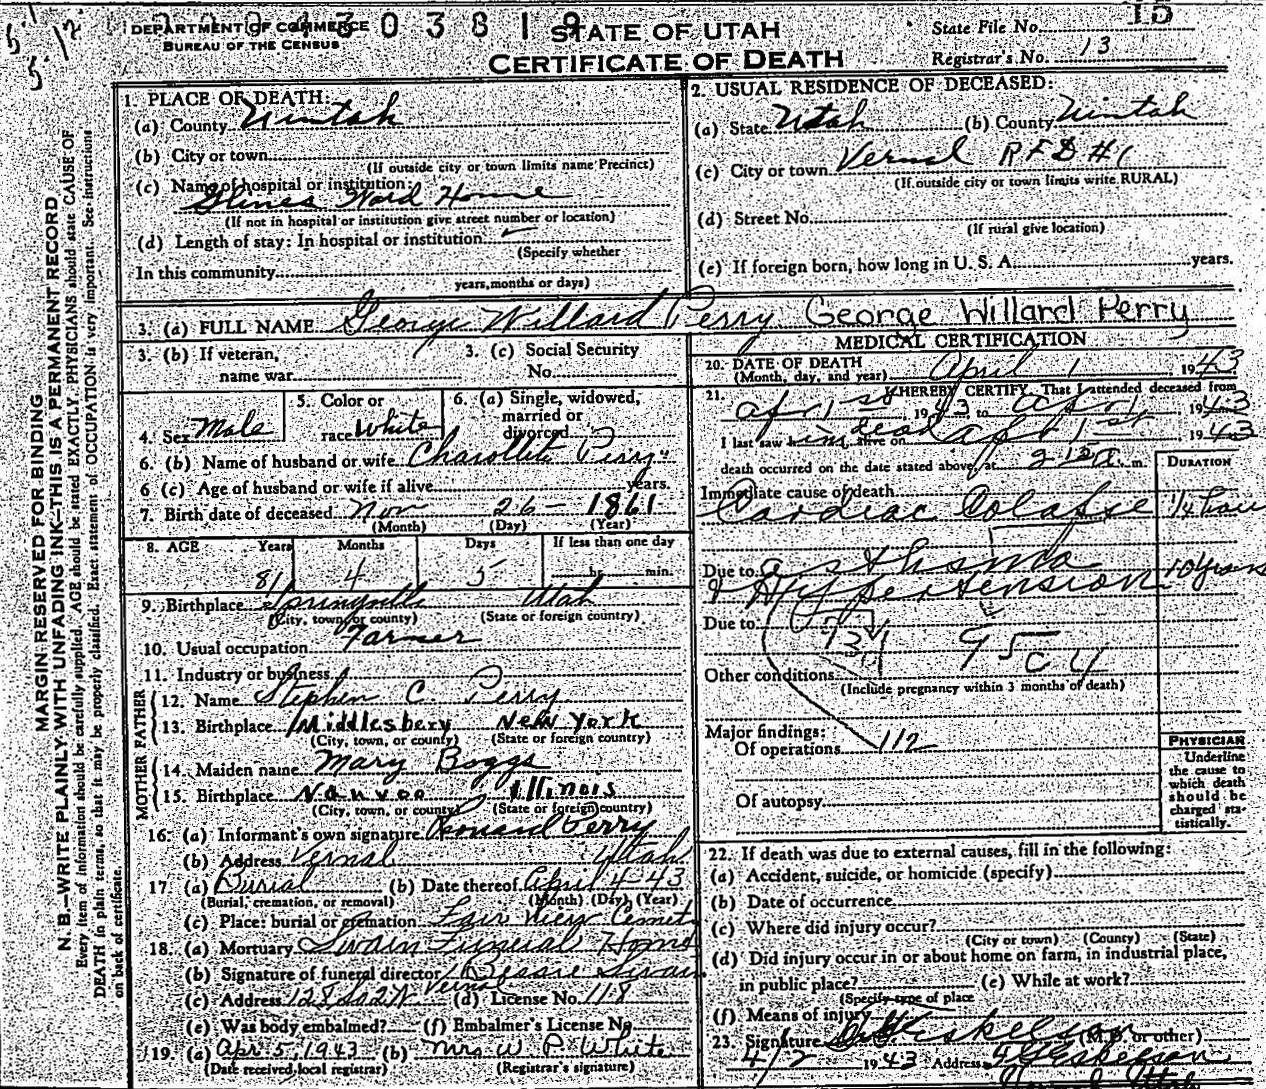 DEPARTMENT OF COMMERCE
BUREAU OF THE CENSUS
4303819
STATE OF UTAH
CERTIFICATE OF DEATH
State File No. 15
Registrar's No. 13
MARGIN RESERVED FOR BINDING
N. B.—WRITE PLAINLY WITH UNFADING INK—THIS IS A PERMANENT RECORD
Every item of information should be carefully supplied. AGE should be stated EXACTLY. PHYSICIANS should state CAUSE OF
DEATH in plain terms, so that it may be properly classified. Exact statement of OCCUPATION is very important. See instructions
on back of certificate.
1. PLACE OF DEATH:
(a) County Uintah
(b) City or town
(If outside city or town limits name Precinct)
(c) Name of hospital or institution:
Glines Ward Home
(If not in hospital or institution give street number or location)
(d) Length of stay: In hospital or institution
(Specify whether
In this community
years, months or days)
2. USUAL RESIDENCE OF DECEASED:
(a) State Utah (b) County Uintah
(c) City or town Vernal RFD #1
(If outside city or town limits write RURAL)
(d) Street No.
(If rural give location)
(e) If foreign born, how long in U. S. A. years.
3. (a) FULL NAME George Willard Perry George Willard Perry
3. (b) If veteran,
name war
3. (c) Social Security
No.
4. Sex Male
5. Color or
race White
6. (a) Single, widowed,
married or
divorced
6. (b) Name of husband or wife Charollete Perry
6 (c) Age of husband or wife if alive years.
7. Birth date of deceased Nov 26 1861
(Month) (Day) (Year)
8. AGE Years Months Days If less than one day
81 4 5 hr. min.
9. Birthplace Springville Utah
(City, town, or county) (State or foreign country)
10. Usual occupation Farmer
11. Industry or business
FATHER
12. Name Stephen C. Perry
13. Birthplace Middlesbery New York
(City, town, or county) (State or foreign country)
MOTHER
14. Maiden name Mary Boggs
15. Birthplace Nauvoo Illinois
(City, town, or county) (State or foreign country)
16. (a) Informant's own signature Leonard Perry
(b) Address Vernal Utah
17. (a) Burial (b) Date thereof April 4-43
(Burial, cremation, or removal) (Month) (Day) (Year)
(c) Place: burial or cremation Fair View Cemet
18. (a) Mortuary Swain Funeral Home
(b) Signature of funeral director Bessie Swain
Vernal
(c) Address 128 So 2 W (d) License No. 118
(e) Was body embalmed? (f) Embalmer's License No.
19. (a) Apr 5, 1943 (b) Mrs W. P. White
(Date received local registrar) (Registrar's signature)
MEDICAL CERTIFICATION
20. DATE OF DEATH
(Month, day, and year) April 1, 1943
21. I HEREBY CERTIFY, That I attended deceased from
apr 1st, 1943, to apr 1, 1943
I last saw him dead alive on apr 1st, 1943
death occurred on the date stated above, at 2 15 a. m.
DURATION
Immediate cause of death
Cardiac Colapse 1/4 hour
Due to asthma
& Hypertension 10 years
Due to
131 95 c 4
Other conditions
(Include pregnancy within 3 months of death)
Major findings:
Of operations 112
Of autopsy
PHYSICIAN
Underline
the cause to
which death
should be
charged sta-
tistically.
22. If death was due to external causes, fill in the following:
(a) Accident, suicide, or homicide (specify)
(b) Date of occurrence
(c) Where did injury occur?
(City or town) (County) (State)
(d) Did injury occur in or about home on farm, in industrial place,
in public place? (e) While at work?
(Specify type of place
(f) Means of injury
23. Signature Eskelson (M.D. or other)
4/2 1943 Address Eskelson
Vernal Utah